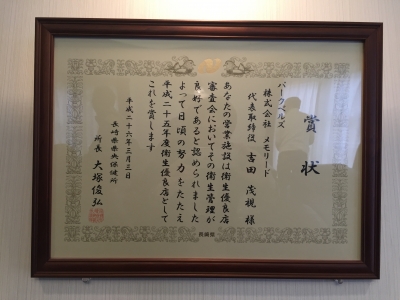 賞状
パークベルズ
株式会社 メモリード
代表取締役 吉田 茂視 様
あなたの営業施設は衛生優良店
審査会においてその衛生管理が
良好であると認められました
よって日頃の努力をたたえ
平成二十五年度衛生優良店として
これを賞します
平成二十六年三月三日
長崎県県央保健所
所長 大塚俊弘